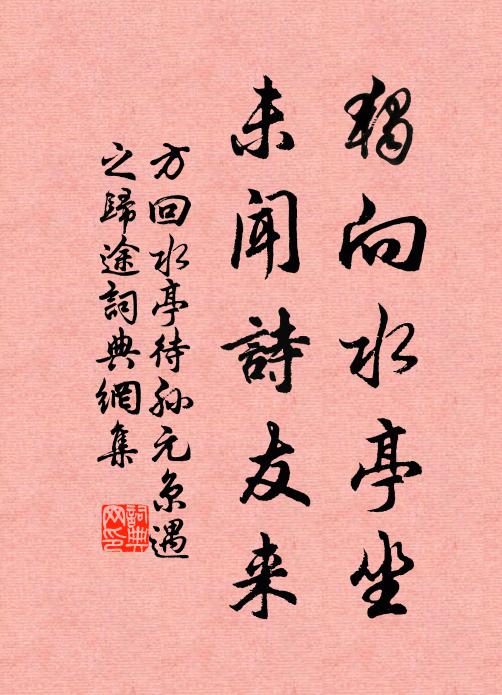 獨向水亭坐
未聞詩友来
方回水亭待孙元京遇
之歸途詞典網集
詞典
网印